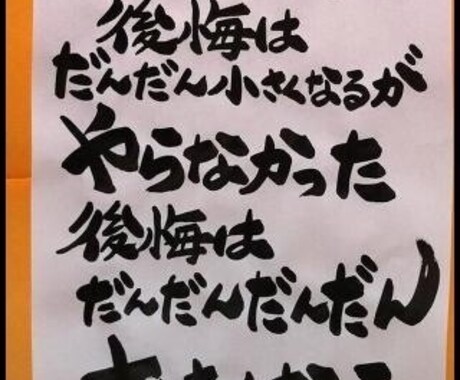 後悔は
だんだん小さくなるが
やらなかった
後悔は
だんだんだんだん